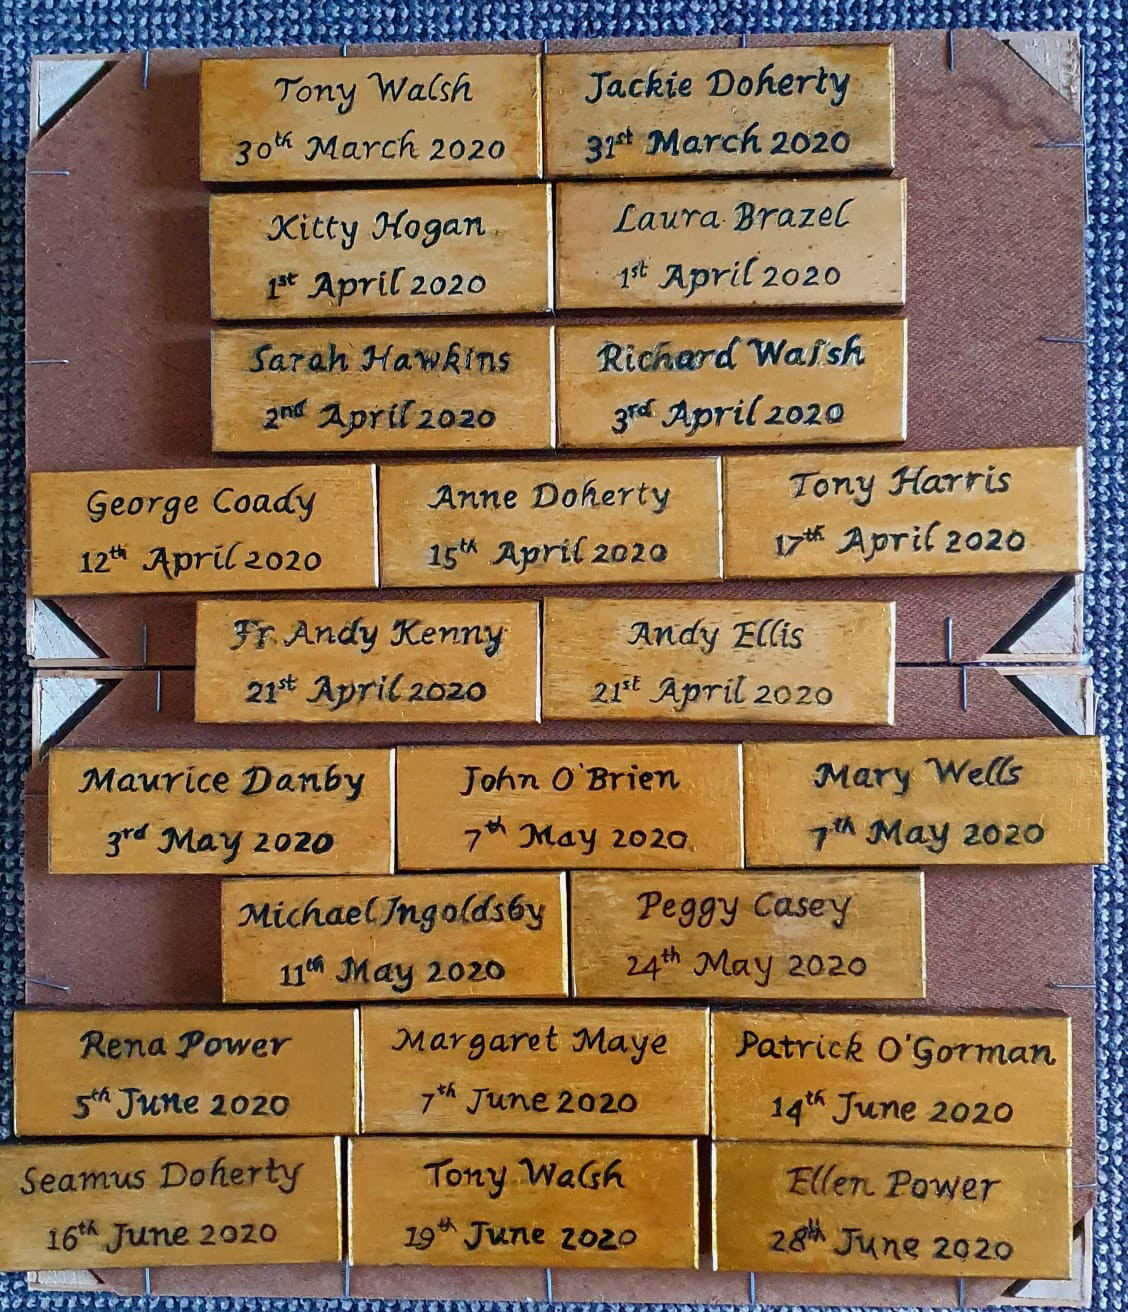 Tony Walsh
30th March 2020
Jackie Doherty
31st March 2020
Kitty Hogan
1st April 2020
Laura Brazel
1st April 2020
Sarah Hawkins
2nd April 2020
Richard Walsh
3rd April 2020
George Coady
12th April 2020
Anne Doherty
15th April 2020
Tony Harris
17th April 2020
Fr. Andy Kenny
21st April 2020
Andy Ellis
21st April 2020
Maurice Danby
3rd May 2020
John O'Brien
7th May 2020
Mary Wells
7th May 2020
Michael Ingoldsby
11th May 2020
Peggy Casey
24th May 2020
Rena Power
5th June 2020
Margaret Maye
7th June 2020
Patrick O'Gorman
14th June 2020
Seamus Doherty
16th June 2020
Tony Walsh
19th June 2020
Ellen Power
28th June 2020